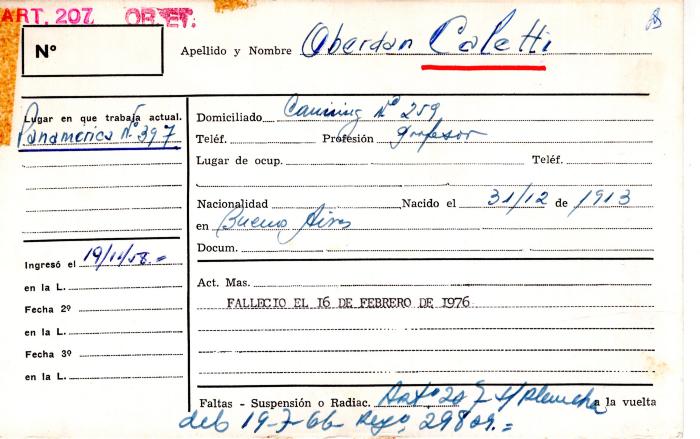 ART. 207. OB. ET.
Nº
Apellido y Nombre Oberdan Caletti
Lugar en que trabaja actual.
Panamerica Nº 397
Domiciliado Canning Nº 259
Teléf. Profesión profesor
Lugar de ocup. Teléf.
Nacionalidad Nacido el 31/12 de 1913
en Buenos Aires
Docum.
Ingresó el 19/11/58.=
en la L.
Fecha 2º
en la L.
Fecha 3º
en la L.
Act. Mas.
FALLECIO EL 16 DE FEBRERO DE 1976
Faltas - Suspensión o Radiac. Art° 207 s/plancha a la vuelta
deb 19-7-66 29809.=